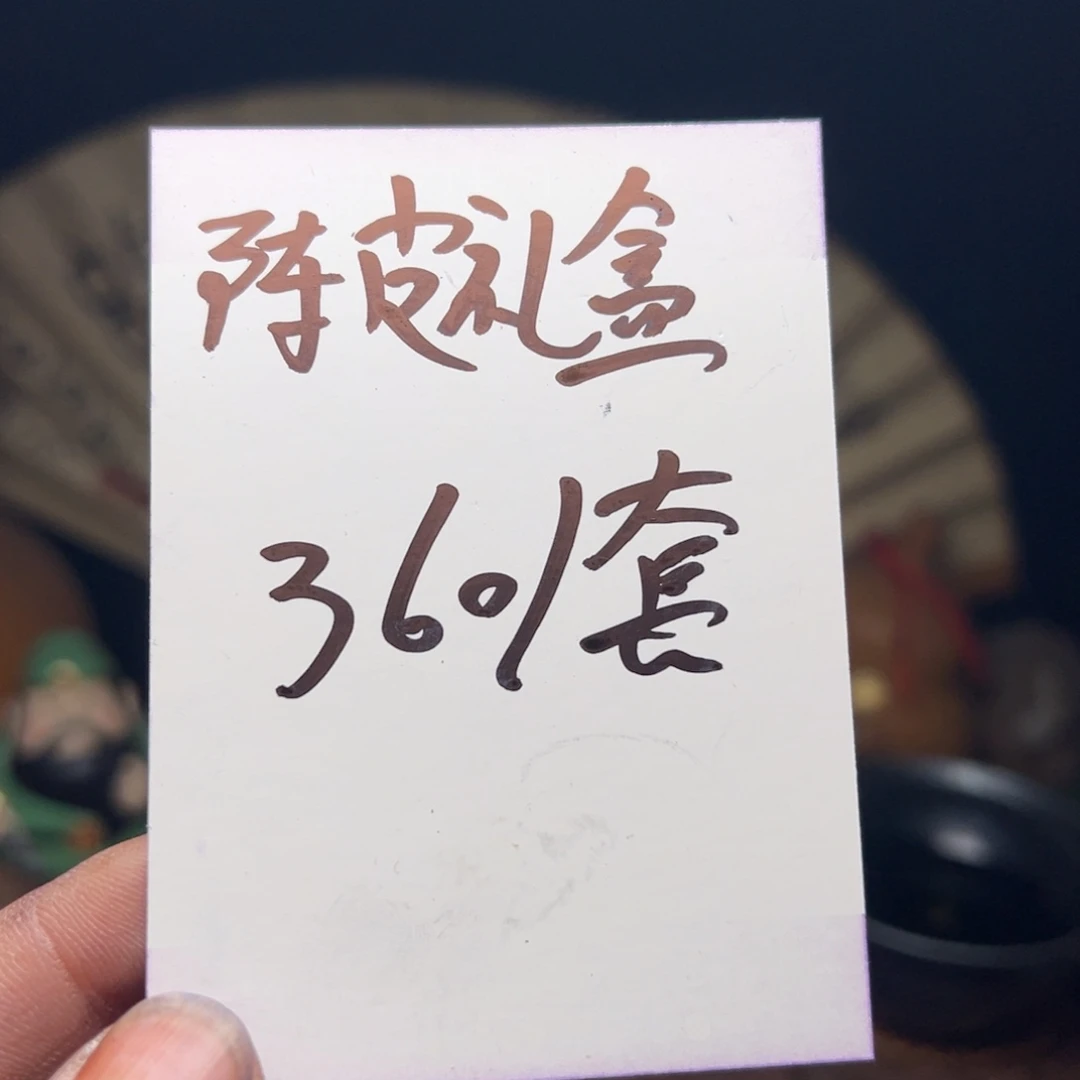 陈皮礼盒
360/套